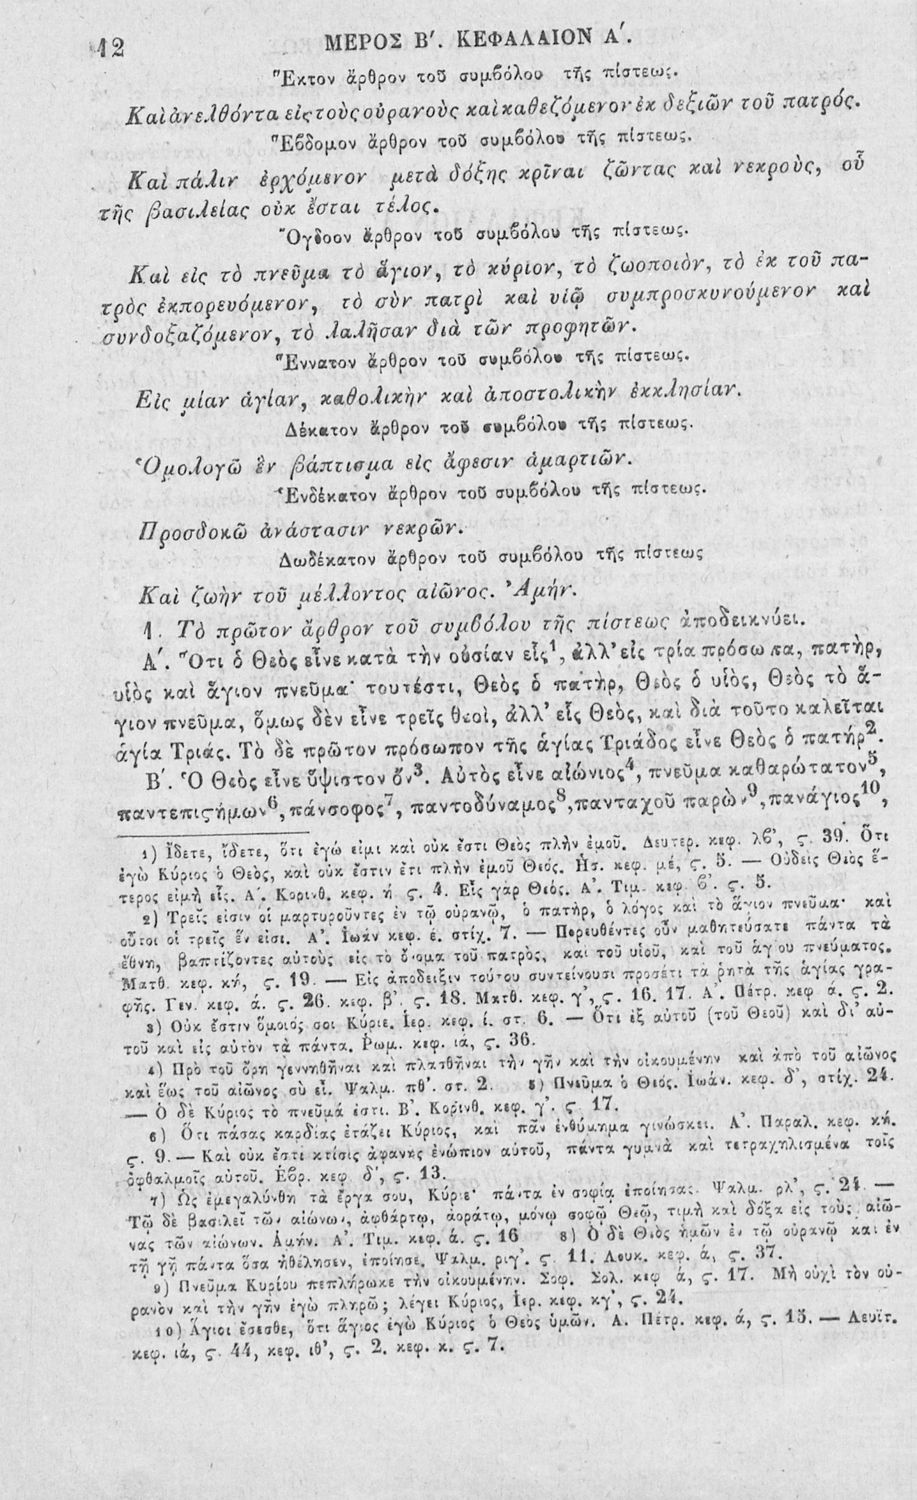 12
ΜΕΡΟΣ Β'. ΚΕΦΑΛΑΙΟΝ Α'.
Ἕκτον ἄρθρον τοῦ συμβόλου τῆς πίστεως.
Καὶ ἀνελθόντα εἰς τοὺς οὐρανοὺς καὶ καθεζόμενον ἐκ δεξιῶν τοῦ πατρός.
Ἕβδομον ἄρθρον τοῦ συμβόλου τῆς πίστεως.
Καὶ πάλιν ἐρχόμενον μετὰ δόξης κρῖναι ζῶντας καὶ νεκροὺς, οὗ
τῆς βασιλείας οὐκ ἔσται τέλος.
Ὄγδοον ἄρθρον τοῦ συμβόλου τῆς πίστεως.
Καὶ εἰς τὸ πνεῦμα τὸ ἅγιον, τὸ κύριον, τὸ ζωοποιὸν, τὸ ἐκ τοῦ πα-
τρὸς ἐκπορευόμενον, τὸ σὺν πατρὶ καὶ υἱῷ συμπροσκυνούμενον καὶ
συνδοξαζόμενον, τὸ λαλῆσαν διὰ τῶν προφητῶν.
Ἔννατον ἄρθρον τοῦ συμβόλου τῆς πίστεως.
Εἰς μίαν ἁγίαν, καθολικὴν καὶ ἀποστολικὴν ἐκκλησίαν.
Δέκατον ἄρθρον τοῦ συμβόλου τῆς πίστεως.
Ὁμολογῶ ἓν βάπτισμα εἰς ἄφεσιν ἁμαρτιῶν.
Ἑνδέκατον ἄρθρον τοῦ συμβόλου τῆς πίστεως.
Προσδοκῶ ἀνάστασιν νεκρῶν.
Δωδέκατον ἄρθρον τοῦ συμβόλου τῆς πίστεως
Καὶ ζωὴν τοῦ μέλλοντος αἰῶνος. Ἀμήν.
1. Τὸ πρῶτον ἄρθρον τοῦ συμβόλου τῆς πίστεως ἀποδεικνύει.
Α'. Ὅτι ὁ Θεὸς εἶνε κατὰ τὴν οὐσίαν εἷς¹, ἀλλ' εἰς τρία πρόσωπα, πατὴρ,
υἱὸς καὶ ἅγιον πνεῦμα· τουτέστι, Θεὸς ὁ πατὴρ, Θεὸς ὁ υἱὸς, Θεὸς τὸ ἅ-
γιον πνεῦμα, ὅμως δὲν εἶνε τρεῖς θεοὶ, ἀλλ' εἷς Θεὸς, καὶ διὰ τοῦτο καλεῖται
ἁγία Τριάς. Τὸ δὲ πρῶτον πρόσωπον τῆς ἁγίας Τριάδος εἶνε Θεὸς ὁ πατήρ².
Β'. Ὁ Θεὸς εἶνε ὕψιστον ὄν³. Αὐτὸς εἶνε αἰώνιος⁴, πνεῦμα καθαρώτατον⁵,
παντεπιςήμων⁶, πάνσοφος⁷, παντοδύναμος⁸, πανταχοῦ παρὼν⁹, πανάγιος¹⁰,
1) Ἴδετε, ἴδετε, ὅτι ἐγώ εἰμι καὶ οὐκ ἔστι Θεὸς πλὴν ἐμοῦ. Δευτερ. κεφ. λβ', ς. 39. Ὅτι
ἐγὼ Κύριος ὁ Θεὸς, καὶ οὐκ ἔστιν ἔτι πλὴν ἐμοῦ Θεός. Ησ. κεφ. μέ, ς. 5. — Οὐδεὶς Θεὸς ἕ-
τερος εἰμὴ εἷς. Α'. Κορινθ. κεφ. ή ς. 4. Εἷς γὰρ Θεός. Α'. Τιμ. κεφ. β'. ς. 5.
2) Τρεῖς εἰσιν οἱ μαρτυροῦντες ἐν τῷ οὐρανῷ, ὁ πατὴρ, ὁ λόγος καὶ τὸ ἅγιον πνεῦμα· καὶ
οὗτοι οἱ τρεῖς ἕν εἰσι. Α'. Ἰωάν κεφ. έ. στίχ. 7. — Πορευθέντες οὖν μαθητεύσατε πάντα τὰ
ἔθνη, βαπτίζοντες αὐτοὺς εἰς τὸ ὄνομα τοῦ πατρὸς, καὶ τοῦ υἱοῦ, καὶ τοῦ ἁγίου πνεύματος.
Ματθ. κεφ. κή, ς. 19. — Εἰς ἀπόδειξιν τούτου συντείνουσι προσέτι τὰ ῥητὰ τῆς ἁγίας γρα-
φῆς. Γεν. κεφ. ά. ς. 26. κεφ. β'. ς. 18. Ματθ. κεφ. γ', ς. 16. 17. Α'. Πέτρ. κεφ ά. ς. 2.
3) Οὐκ ἔστιν ὅμοιός σοι Κύριε. Ἱερ. κεφ. ί. στ. 6. — Ὅτι ἐξ αὐτοῦ (τοῦ Θεοῦ) καὶ δι' αὐ-
τοῦ καὶ εἰς αὐτὸν τὰ πάντα. Ῥωμ. κεφ. ιά, ς. 36.
4) Πρὸ τοῦ ὄρη γεννηθῆναι καὶ πλασθῆναι τὴν γῆν καὶ τὴν οἰκουμένην καὶ ἀπὸ τοῦ αἰῶνος
καὶ ἕως τοῦ αἰῶνος σὺ εἶ. Ψαλμ. πθ'. στ. 2. 5) Πνεῦμα ὁ Θεός. Ἰωάν. κεφ. δ', στίχ. 24.
— Ὁ δὲ Κύριος τὸ πνεῦμά ἐστι. Β'. Κορινθ. κεφ. γ'. ς. 17.
6) Ὅτι πάσας καρδίας ἐτάζει Κύριος, καὶ πᾶν ἐνθύμημα γινώσκει. Α'. Παραλ. κεφ. κή.
ς. 9. — Καὶ οὐκ ἔστι κτίσις ἀφανὴς ἐνώπιον αὐτοῦ, πάντα γυμνὰ καὶ τετραχηλισμένα τοῖς
ὀφθαλμοῖς αὐτοῦ. Ἑβρ. κεφ δ', ς. 13.
7) Ὡς ἐμεγαλύνθη τὰ ἔργα σου, Κύριε· πάντα ἐν σοφίᾳ ἐποίησας. Ψαλμ. ρλ', ς. 24. —
Τῷ δὲ βασιλεῖ τῶν αἰώνων, ἀφθάρτῳ, ἀοράτῳ, μόνῳ σοφῷ Θεῷ, τιμὴ καὶ δόξα εἰς τοὺς αἰῶ-
νας τῶν αἰώνων. Ἀμήν. Α'. Τιμ. κεφ. ά. ς. 16 8) Ὁ δὲ Θεὸς ἡμῶν ἐν τῷ οὐρανῷ καὶ ἐν
τῇ γῇ πάντα ὅσα ἠθέλησεν, ἐποίησε. Ψαλμ. ριγ'. ς 11. Λουκ. κεφ. ά, ς. 37.
9) Πνεῦμα Κυρίου πεπλήρωκε τὴν οἰκουμένην. Σοφ. Σολ. κεφ ά, ς. 17. Μὴ οὐχὶ τὸν οὐ-
ρανὸν καὶ τὴν γῆν ἐγὼ πληρῶ; λέγει Κύριος, Ἱερ. κεφ. κγ', ς. 24.
10) Ἅγιοι ἔσεσθε, ὅτι ἅγιος ἐγὼ Κύριος ὁ Θεὸς ὑμῶν. Α. Πέτρ. κεφ. ά, ς. 15. — Λευϊτ.
κεφ. ιά, ς. 44, κεφ. ιθ', ς. 2. κεφ. κ. ς. 7.